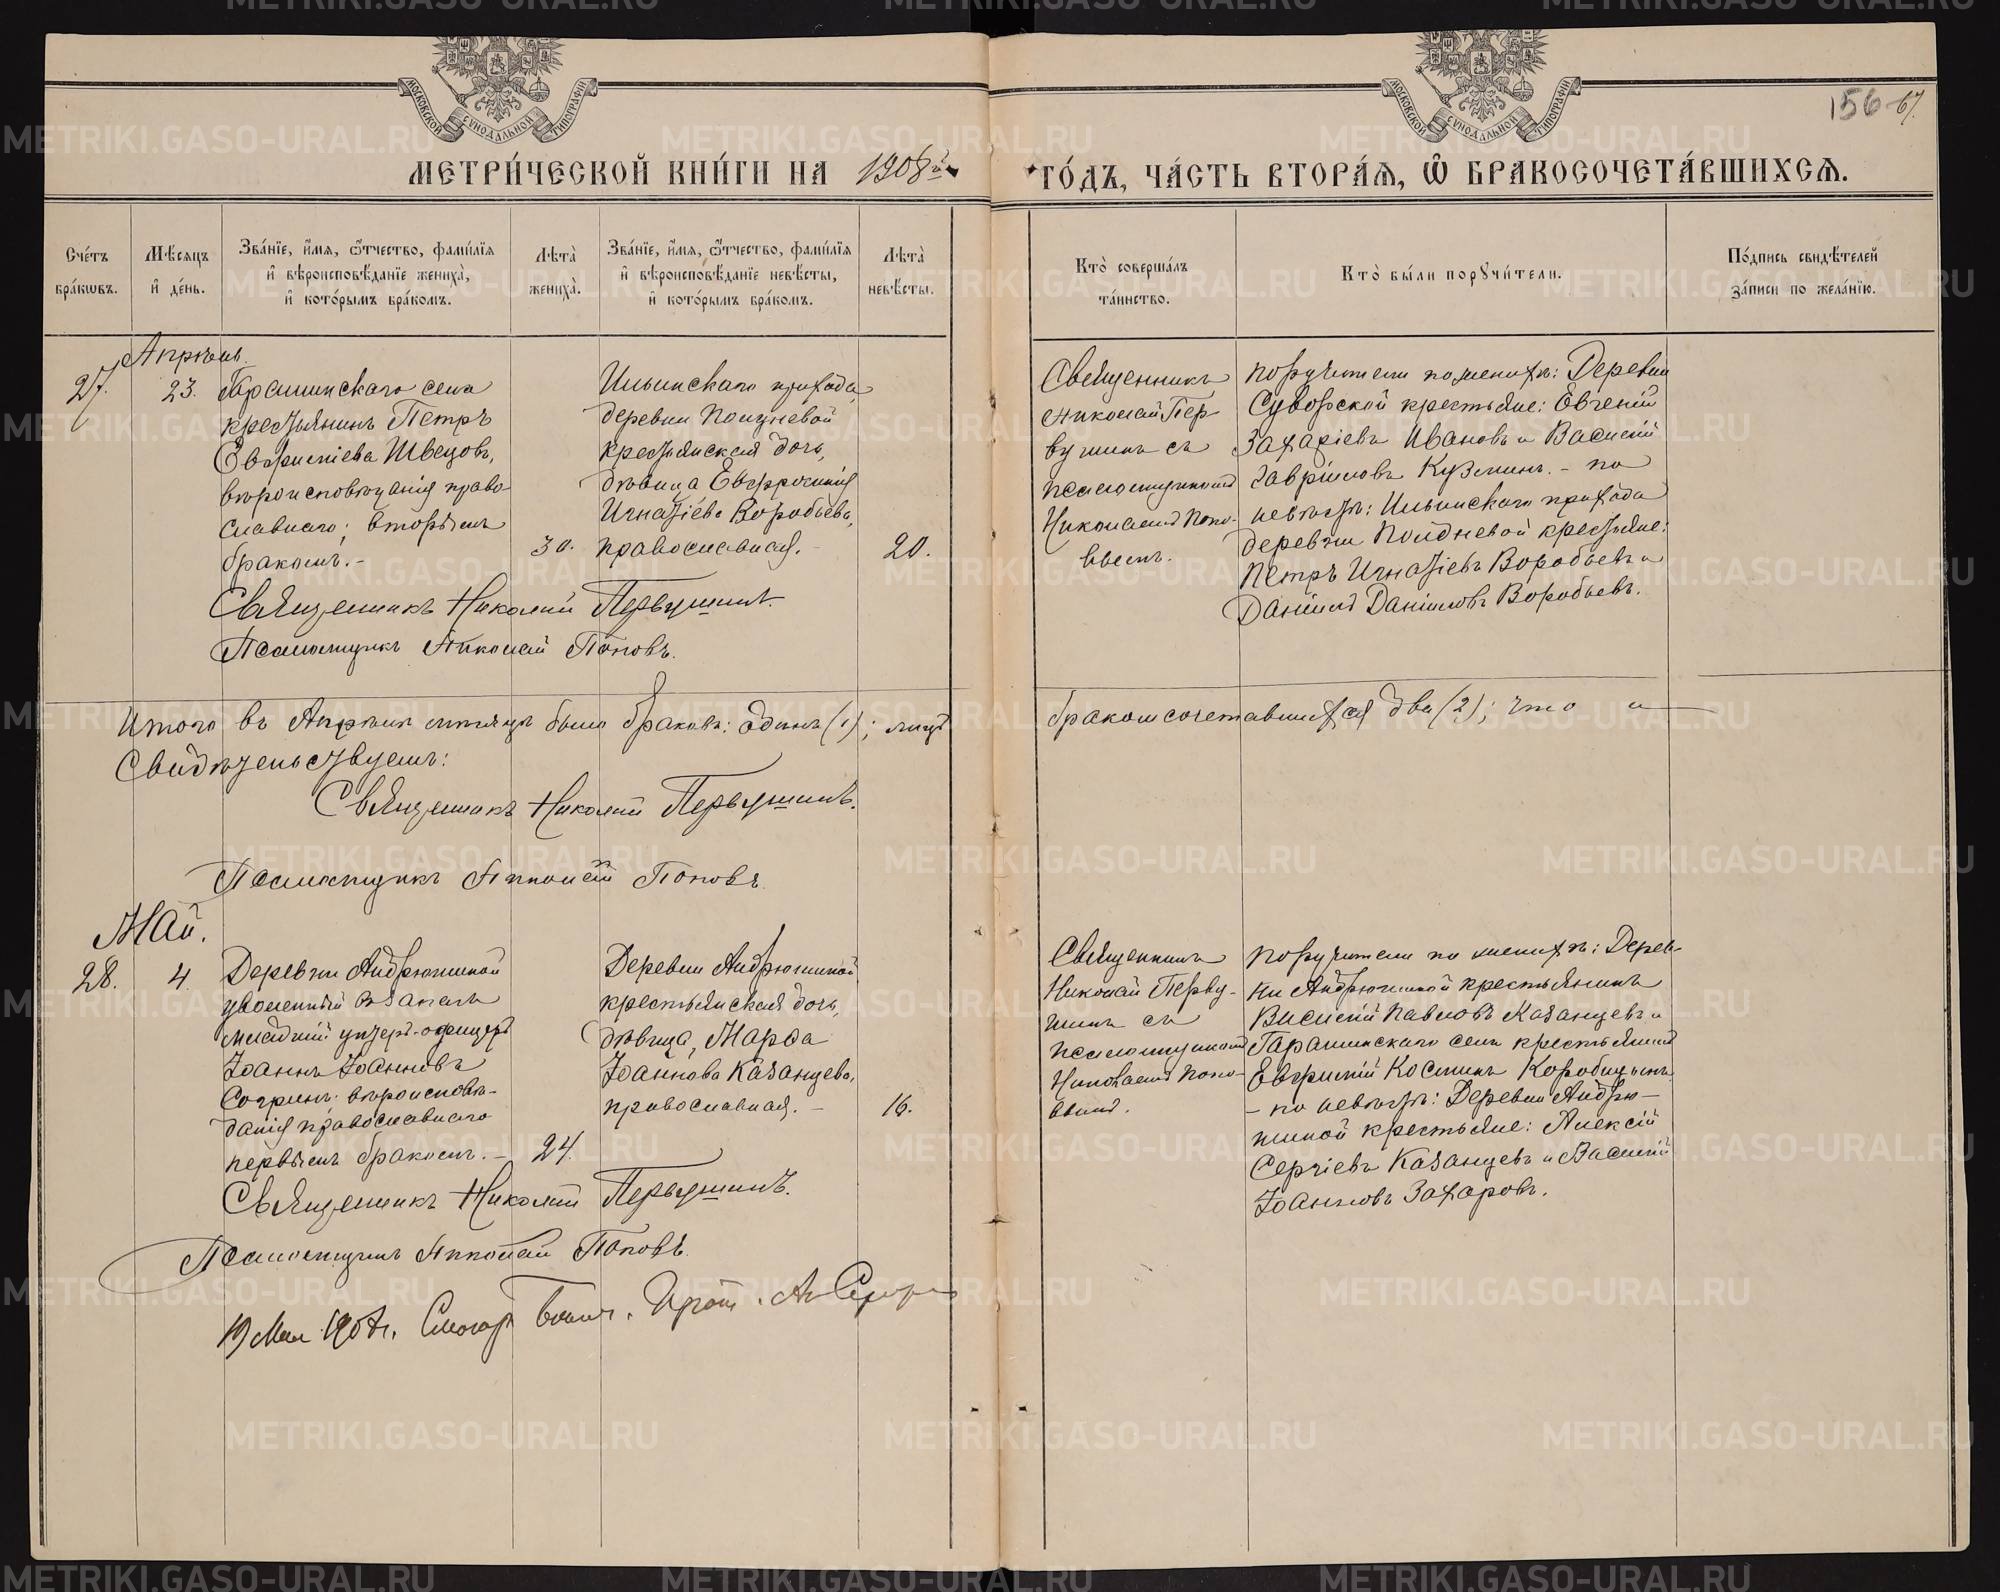 МОСКОВСКОЙ СѴНОДАЛЬНОЙ ТИПОГРАФІИ
МОСКОВСКОЙ СѴНОДАЛЬНОЙ ТИПОГРАФІИ
156 67.
МЕТРИ́ЧЕСКОЙ КНИ́ГИ НА 1908й
ГО́ДЪ, ЧА́СТЬ ВТОРА́Ѧ, Ѡ҆ БРАКОСОЧЕТА́ВШИХСѦ.
Сче́тъ бра́кωвъ.
Мѣ́сяцъ и҆ де́нь.
Зва́нїе, и҆́мѧ, ѻ҆́тчество, фами́лїѧ
и҆ вѣроисповѣ́данїе жениха̀,
и҆ кото́рымъ бра́комъ.
Лѣта̀ жениха̀.
Зва́нїе, и҆́мѧ, ѻ҆́тчество, фами́лїѧ
и҆ вѣроисповѣ́данїе невѣ́сты,
и҆ кото́рымъ бра́комъ.
Лѣта̀ невѣ́сты.
Кто̀ соверша́лъ
та́инство.
Кто̀ бы́ли порꙋчи́тели.
По́дпись свидѣ́телей
за́писи по жела́нїю.
Апрѣль.
27.
23.
Гарашинскаго села
крестьянинъ Петръ
Евфиміевъ Швецовъ,
вѣроисповѣданія право-
славнаго; вторымъ
бракомъ.-
30.
Ильинскаго прихода,
деревни Полдневой
крестьянская дочь,
дѣвица Евфросинія
Игнатіева Воробьева,
православная.-
20.
Священникъ
Николай Пер-
вушинъ съ
псаломщикомъ
Николаемъ Попо-
вымъ.
Поручители по женихѣ: Деревни
Суворской крестьяне: Евгеній
Захаріевъ Ивановъ и Василій
Гавріиловъ Кузминъ.- по
невѣстѣ: Ильинскаго прихода
деревни Полдневой крестьяне:
Петръ Игнатіевъ Воробьевъ и
Даніилъ Даніиловъ Воробьевъ.
Священникъ Николай Первушинъ.
Псаломщикъ Николай Поповъ.
Итого въ Апрѣлѣ мѣсяцѣ было браковъ: одинъ (1); лицъ
бракомъ сочетавшихся два (2); что и
Свидѣтельствуемъ:
Священникъ Николай Первушинъ.
Псаломщикъ Николай Поповъ.
Май.
28.
4.
Деревни Андрюшиной
уволенный въ запасъ
младшій унтеръ-офицеръ
Іоаннъ Іоанновъ
Согринъ: вѣроисповѣ-
данія православнаго
первымъ бракомъ.-
24.
Деревни Андрюшиной
крестьянская дочь,
дѣвица, Марѳа
Іоаннова Казанцева,
православная.-
16.
Священникъ
Николай Перву-
шинъ съ
псаломщикомъ
Николаемъ Попо-
вымъ.
Поручители по женихѣ: Дерев-
ни Андрюшиной крестьянинъ
Василій Павловъ Казанцевъ и
Гарашинскаго села крестьянинъ
Евфимій Косминъ Коробицынъ.
- по невѣстѣ: Деревни Андрю-
шиной крестьяне: Алексій
Сергіевъ Казанцевъ и Василій
Іоанновъ Захаровъ.
Священникъ Николай Первушинъ.
Псаломщикъ Николай Поповъ.
19 Мая 1908 г. Смотр. Благ. Прот.